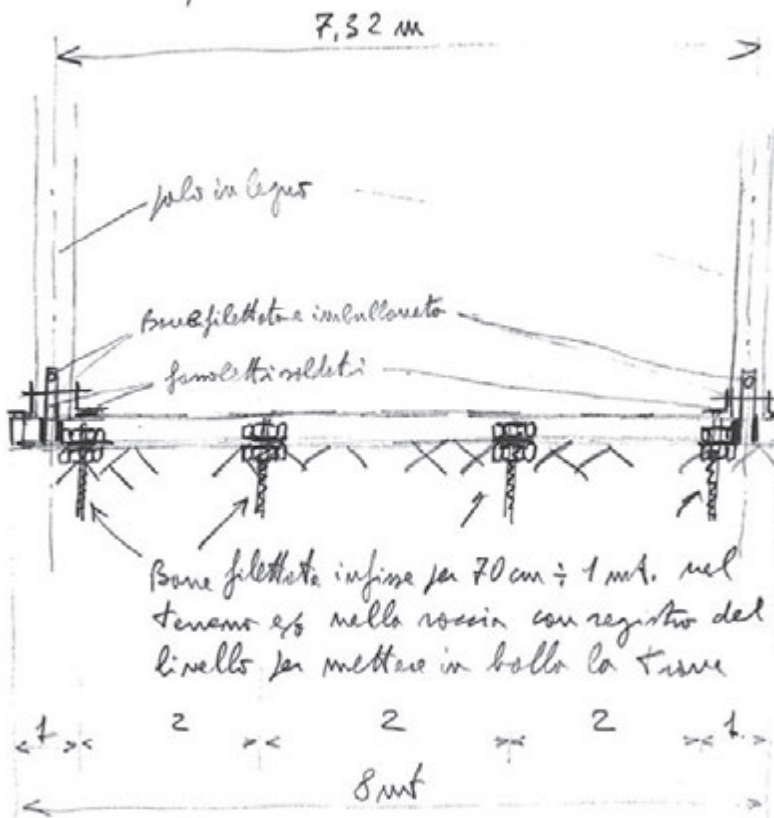 7,32 m
palo in legno
Barre filettate e imbullonate
fazzoletti saldati
Barre filettate infisse per 70 cm ÷ 1 mt. nel
terreno e/o nella roccia con registro del
livello per mettere in bolla la trave
1 2 2 2 1
8 mt